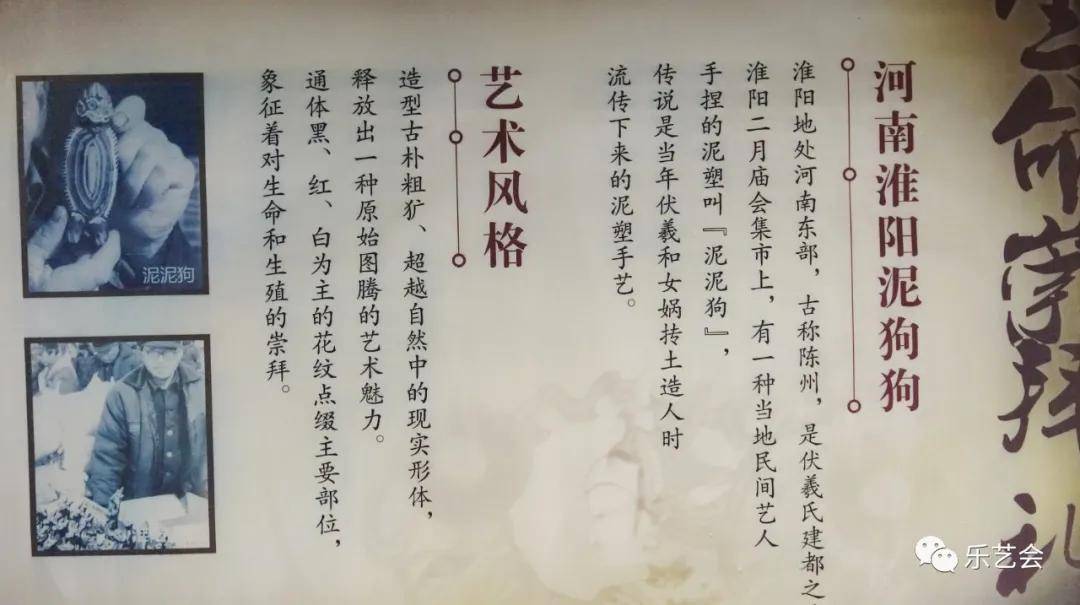 命崇拜 礼
河南淮阳泥狗狗
淮阳地处河南东部，古称陈州，是伏羲氏建都之
淮阳二月庙会集市上，有一种当地民间艺人
手捏的泥塑叫『泥泥狗』，
传说是当年伏羲和女娲抟土造人时
流传下来的泥塑手艺。
艺术风格
造型古朴粗犷、超越自然中的现实形体，
释放出一种原始图腾的艺术魅力。
通体黑、红、白为主的花纹点缀主要部位，
象征着对生命和生殖的崇拜。
泥泥狗
乐艺会